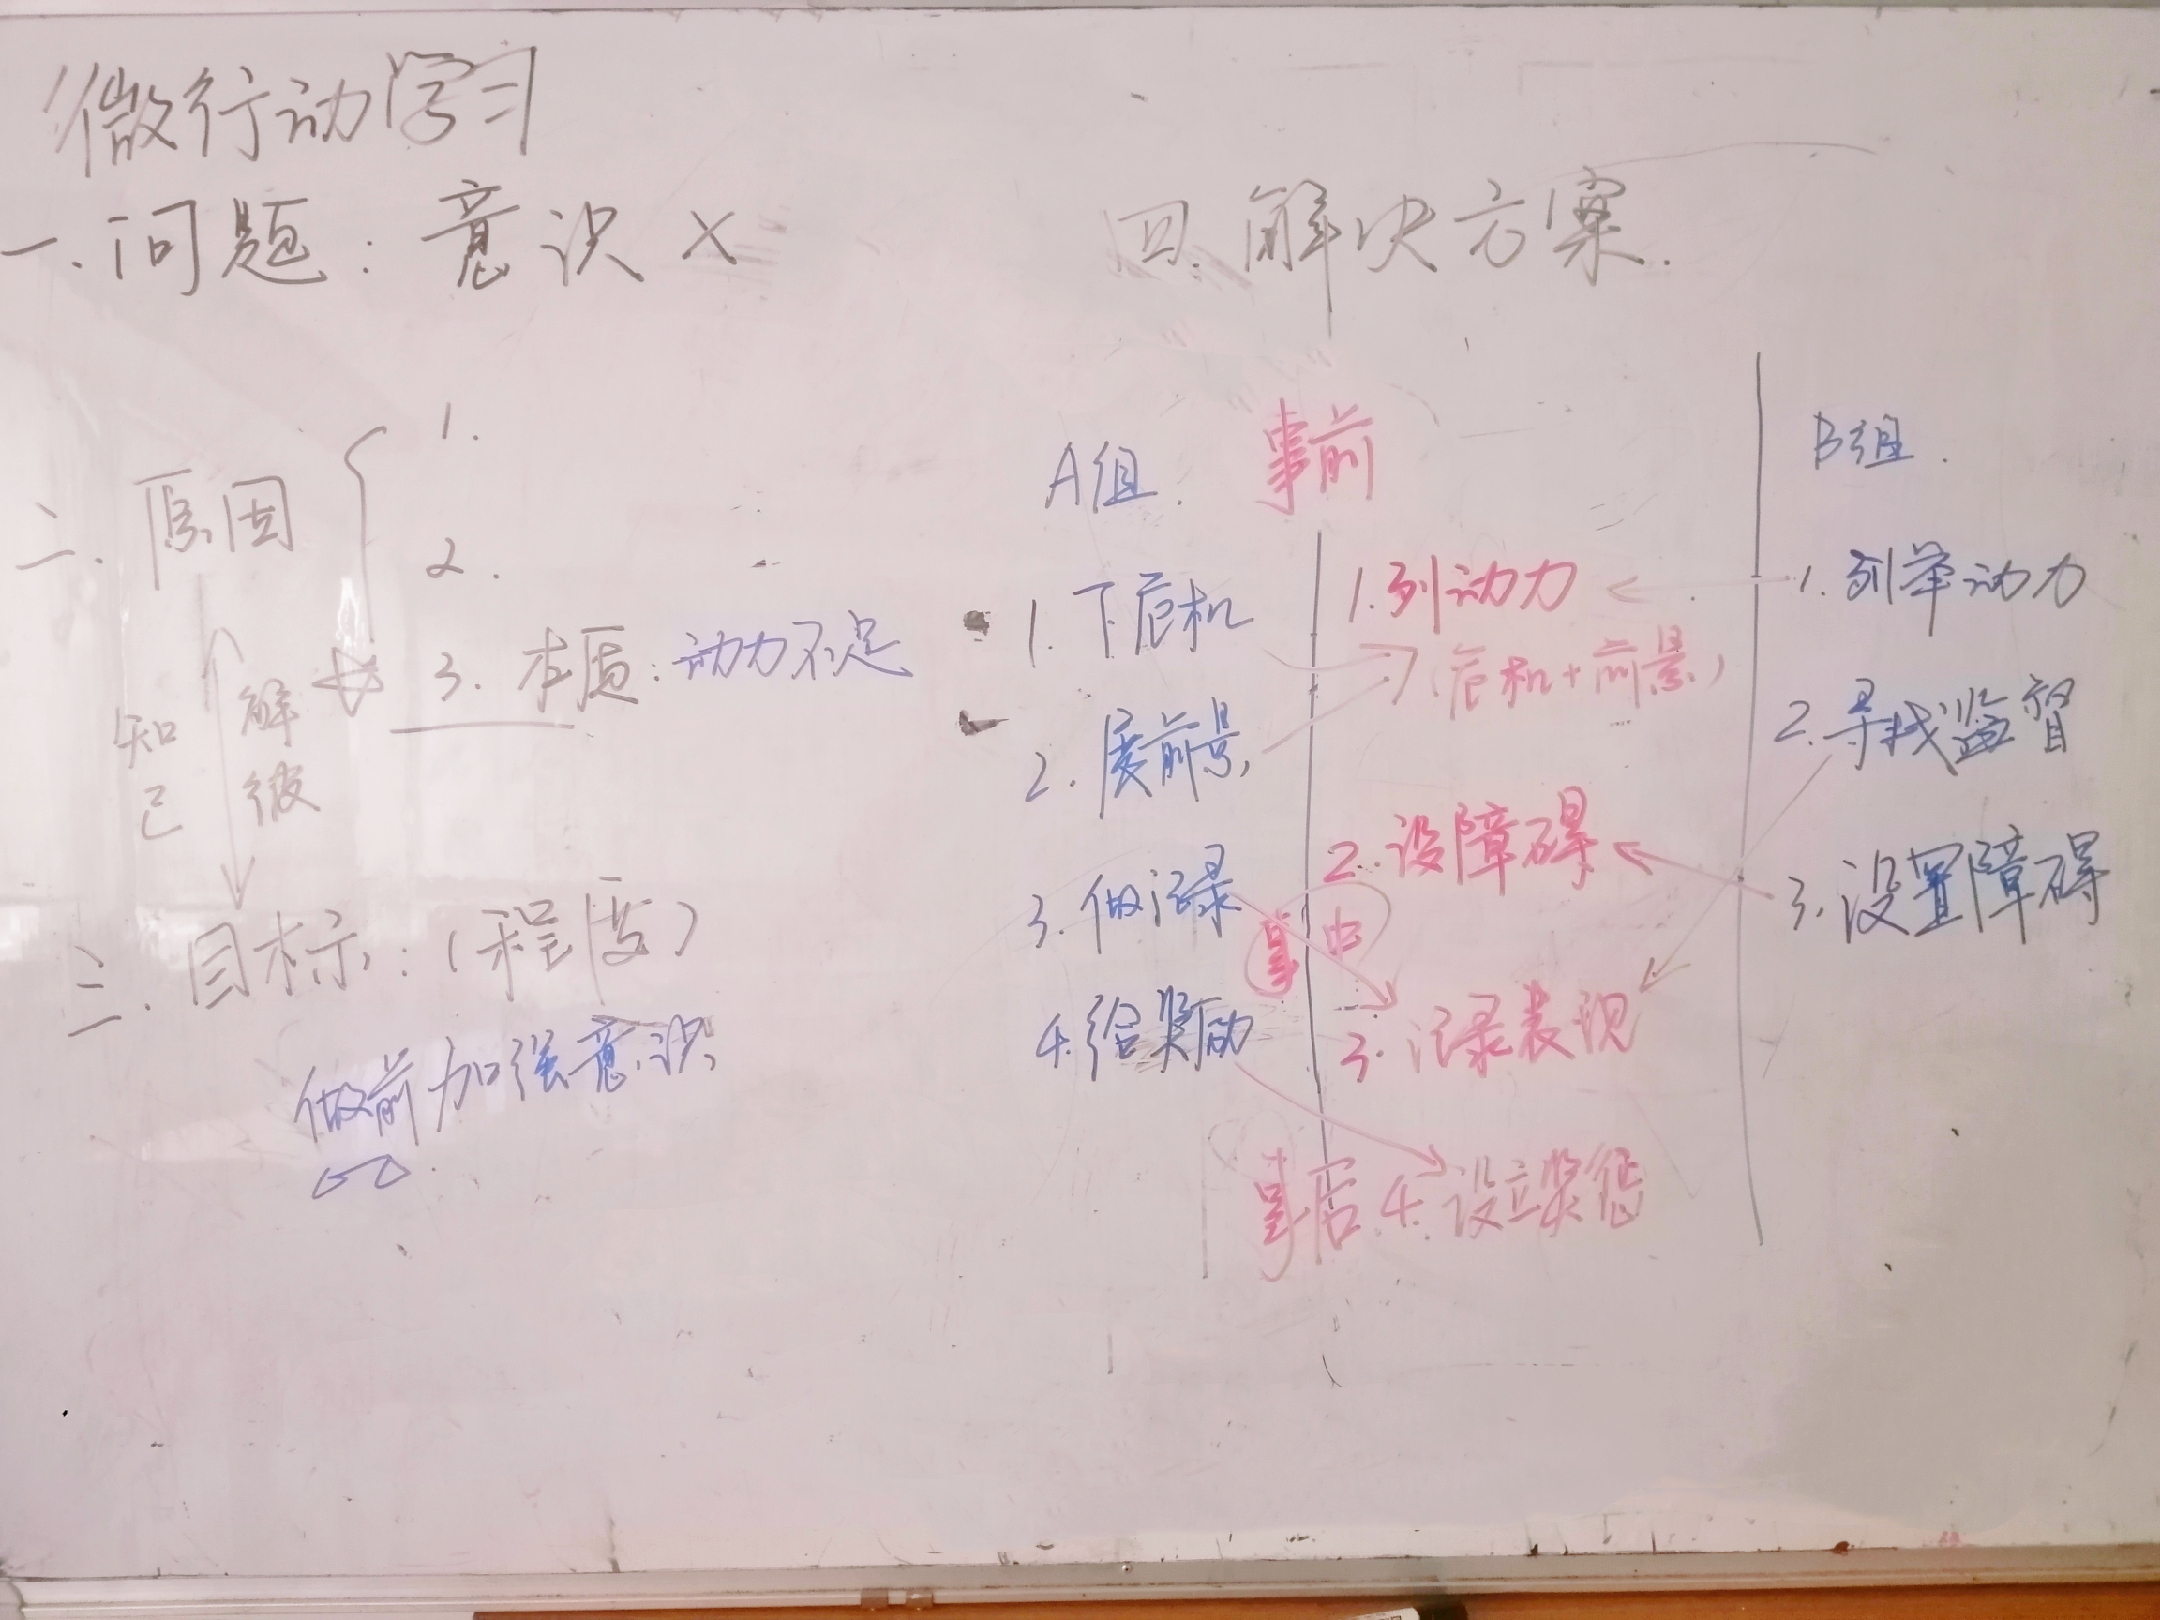 微行动学习
一.问题:意识 ×
二.原因
1.
2.
3.本质:动力不足
知己
解彼
三.目标:(程度)
做前加强意识
四.解决方案.
A组.
1.下危机
2.展前景
3.做记录
4.给奖励
事前
1.列动力
(危机+前景)
2.设障碍
事中
3.记录表现
事后
4.设立奖惩
B组.
1.列举动力
2.寻找监督
3.设置障碍